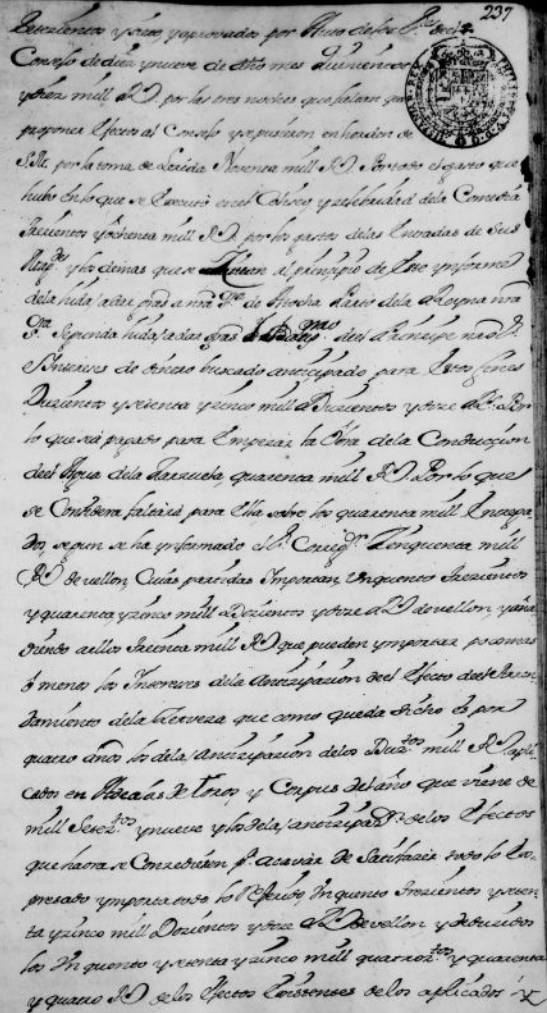 237
Setezientos y siete, y aprovados por Auto de los S.res del
Consejo de diez y nueve de dho mes Quinientos
y diez mill RV. por las tres noches que faltan que
proponer Efectos al Consejo y se pusieron en horden de
S.M. por la toma de Lerida Noventa mill RV. Por todo el gasto que
hubo en lo que se Executó en el Coliseo, y zelebridad de la Comedia
Trecientos y ochenta mill RV. por los gastos de las Entradas de Sus
Mag.des y los demas que se al prinçipio de Este ynforme
de la hida, a dar gras a nra S.ra de Atocha Parto de la Reyna nra
S.ra Segunda hida, a dar gras del Prinçipe nro S.r
e Intereses de dinero buscado antiçipado para Estos fines
Duzientos y setenta y zinco mill Duzientos y doze RV. Por
lo que está pagado para Empezar la Obra de la Conduccion
del Agua de la Zarzuela, quarenta mill RV. Por lo que
se Considera faltará para Ella sobre los quarenta mill Entrega-
dos, segun se ha ynformado el S.r Correg.or Zinquenta mill
RV de vellon, Cuias partidas Importan, Un quento Trezientos
y quarenta y zinco mill Dozientos y doze RV de vellon, y aña-
diendo a ellos Treinta mill RV que pueden ymportar poco mas
ó menos los Intereses de la antizipazion del Efecto del Arren-
damiento de la Zerveza que como queda dicho es por
quatro años los de la antizipazion de los Duz.tos mill RV apli-
cados en de Toros, y Corpus del año que viene de
mill Setez.tos y nueve y los de la antizipaz.n de los Efectos
que haora se Conzediesen p.a acavar de Satisfazer todo lo Ex-
presado ymporta todo lo Referido Un quento Trezientos y seten-
ta y zinco mill Dozientos y doze RV de vellon y deduzidos
los Un quento y setenta y zinco mill quatroz.tos y quarenta
y quatro RV de los Efectos Existentes de los aplicados